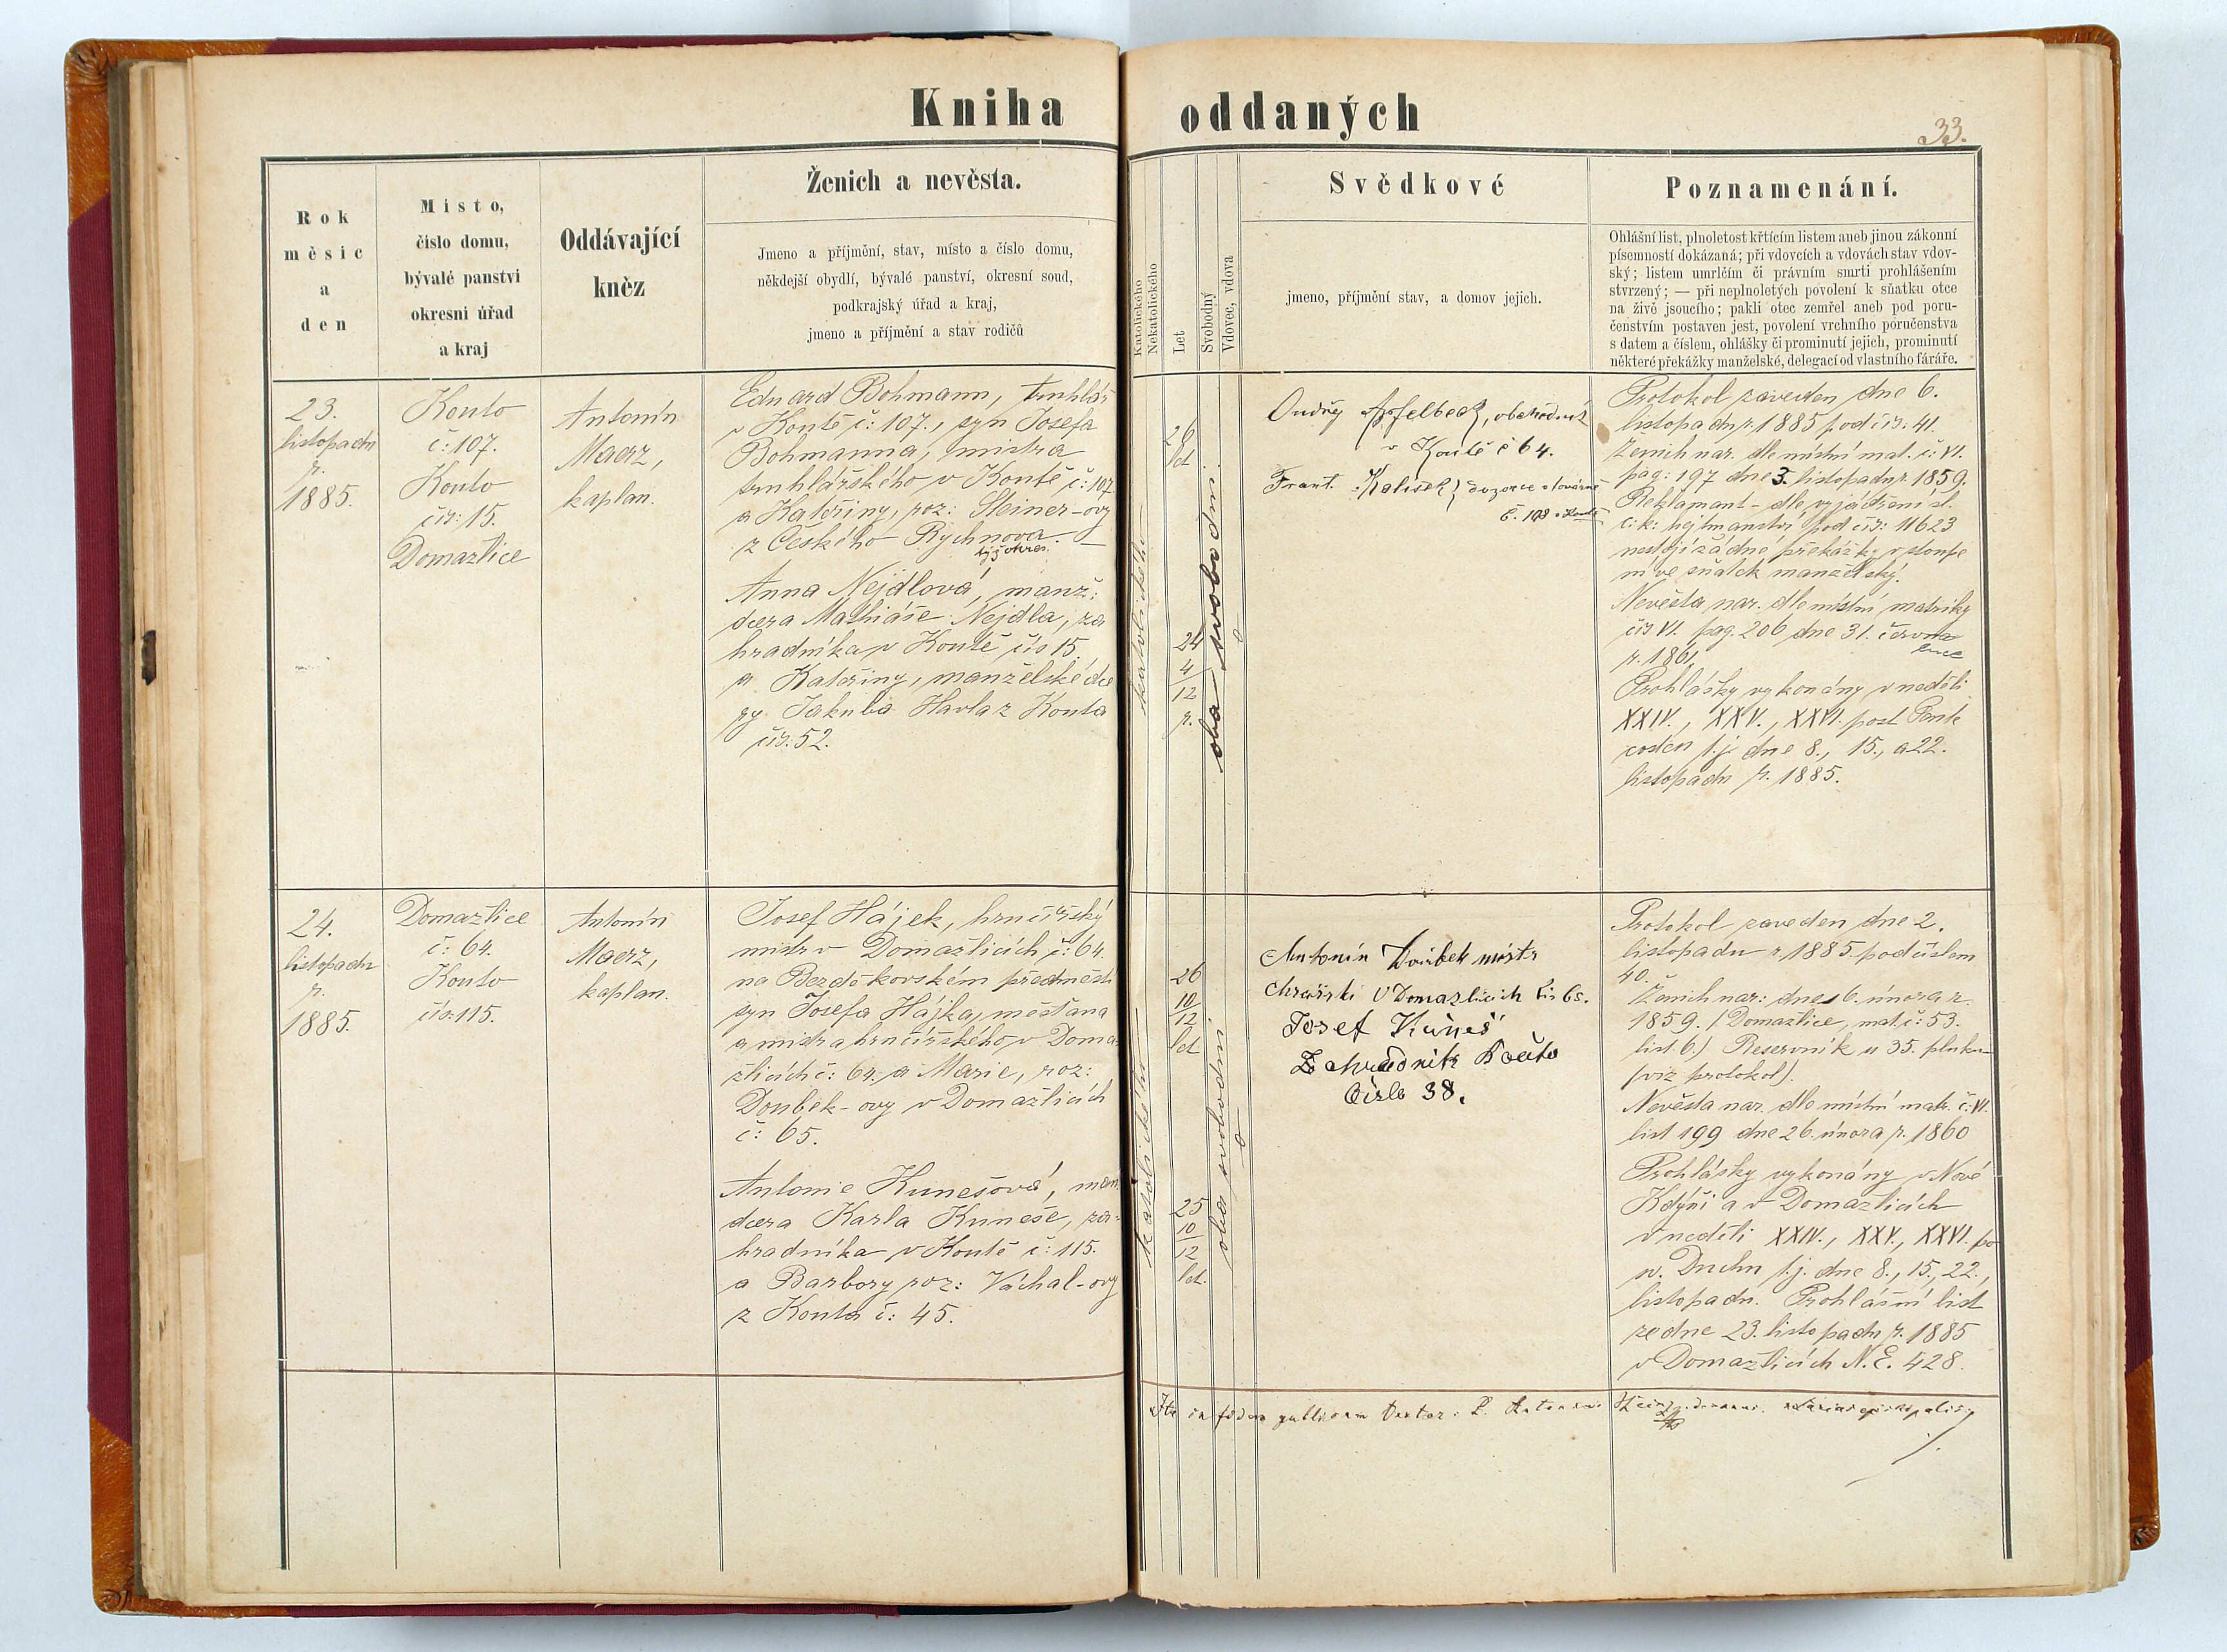 Kniha
oddaných
33.
Rok
měsíc
a
den
Místo,
číslo domu,
bývalé panství
okresní úřad
a kraj
Oddávající
kněz
Ženich a nevěsta.
Jmeno a příjmění, stav, místo a číslo domu,
někdejší obydlí, bývalé panství, okresní soud,
podkrajský úřad a kraj,
jmeno a příjmění a stav rodičů
Katolického
Nekatolického
Let
Svobodný
Vdovec, vdova
Svědkové
jmeno, příjmění stav, a domov jejich.
Poznamenání.
Ohlášní list, plnoletost křtícím listem aneb jinou zákonní
písemností dokázaná; při vdovcích a vdovách stav vdov-
ský; listem umrlčím či právním smrti prohlášením
stvrzený; — při neplnoletých povolení k sňatku otce
na živě jsoucího; pakli otec zemřel aneb pod poru-
čenstvím postaven jest, povolení vrchního poručenstva
s datem a číslem, ohlášky či prominutí jejich, prominutí
některé překážky manželské, delegací od vlastního fáráře.
23.
listopadu
r.
1885.
Kouto
č: 107.
Kouto
čís: 15.
Domažlice
Antonín
Maerz,
kaplan.
Eduard Bohmann, truhlář
v Koutě č: 107., syn Josefa
Bohmanna, mistra
truhlářského v Koutě č: 107
a Kateřiny, roz: Steiner-ovy
z Českého Rychnova.
týž okres.
Anna Nejdlová, manž:
dcera Mathiáše Nejdla, za
hradníka v Koutě čís 15.
a Kateřiny, manželské dce
ry Jakuba Havla z Kouta
čís: 52.
katolického
26
let
24
4
12
r.
oba svobodni
Ondřej Apfelbeck, obchodník
v Koutě č 64.
Frant. Kalisek, dozorce v továrně
č. 198 v Koutě
Protokol zaveden dne 6.
listopadu r. 1885 pod čís: 41.
Ženich nar. dle místní mat. č: VI.
pag: 197 dne 3. listopadu r. 1859.
Reklamant - dle vyjádření sl.
c: k: hejtmanství pod čís: 11623
nestojí žádné překážky v stoupe
ní ve sňatek manželský.
Nevěsta nar. dle místní matriky
čís VI. pag. 206 dne 31. června
r. 1861,
Prohlášky vykonány v neděli
XXIV., XXV., XXVI. post Pente
costen t.j. dne 8., 15., a 22.
listopadu r. 1885.
24.
listopadu
r.
1885.
Domažlice
č: 64.
Kouto
čís: 115.
Antonín
Maerz,
kaplan.
Josef Hájek, hrnčířský
mistr v Domažlicích č: 64.
na Bezděkovském předměstí
syn Josefa Hájka, měšťana
a mistra hrnčířského v Doma
žlicích č: 64. a Marie, roz:
Doubek-ovy v Domažlicích
č: 65.
Antonie Kunešová, man.
dcera Karla Kuneše, za-
hradníka v Koutě č: 115.
a Barbory roz: Váchal-ovy
z Kouta č: 45.
katolického
26
10
12
let
25
10
12
let.
oba svobodni
Antonín Doubek mistr
V Domažlicich čis 65.
Josef Kuneš
Zahradník Kouto
čislo 38.
Protokol zaveden dne 2.
listopadu r. 1885. pod číslem
40.
Ženich nar: dne 6. února r.
1859. (Domažlice, mat. č: 53.
list. 6.) Reservník u 35. pluku
(viz protokol).
Nevěsta nar. dle místní matr. č: VI.
list 199 dne 26. února r. 1860
Prohlášky vykonány v Nové
Kdyni a v Domažlicích
v neděli XXIV., XXV., XXVI. po
sv. Duchu t.j. dne 8., 15., 22.,
listopadu. Prohlášní list
ze dne 23. listopadu r. 1885
v Domažlicích N. E. 428.